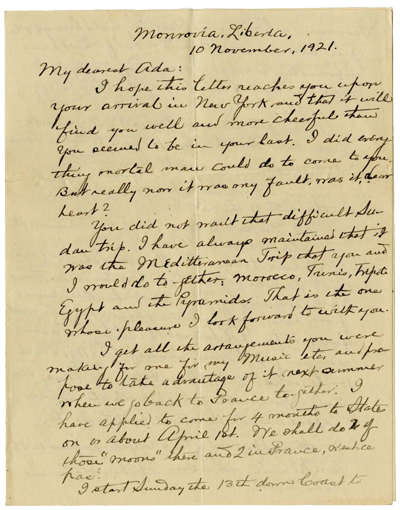 Monrovia, Liberia,
10 November, 1921.
My dearest Ada:
I hope this letter reaches you upon
your arrival in New York and that it will
find you well and more cheerful than
you seemed to be in your last. I did every
thing mortal man could do to come to you.
But really now it was my fault, was it, dear
heart?
You did not want that difficult Su-
dan trip. I have always maintained that it
was the Mediterranean Trip that you and
I would do to-gether, Morocco, Tunis, Tripoli
Egypt and the Pyramids. That is the one
whose pleasure I look forward to with you.
I get all the arrangements you were
making for me for my Music etc and pro-
pose to take advantage of it next summer
when we go back to France to-gether. I
have applied to come for 4 months to States
on or about April 1st. We shall do 2 of
those "moons" there and 2 in France, n'est ce
pas?
I start Sunday the 13th down Coast to